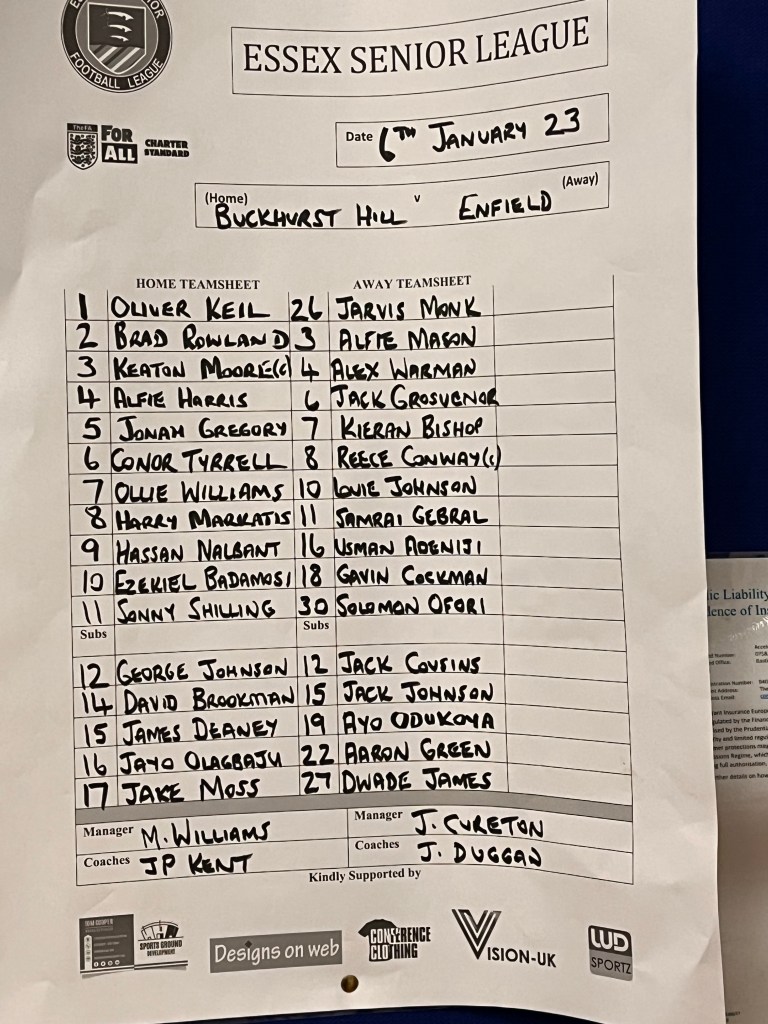 FOOTBALL LEAGUE
ESSEX SENIOR LEAGUE
The FA
FOR ALL
CHARTER STANDARD
Date 6TH JANUARY 23
(Home) v (Away)
BUCKHURST HILL ENFIELD
HOME TEAMSHEET AWAY TEAMSHEET
1 OLIVER KEIL 26 JARVIS MONK
2 BRAD ROWLAND 3 ALFIE MASON
3 KEATON MOORE(c) 4 ALEX WARMAN
4 ALFIE HARRIS 6 JACK GROSVENOR
5 JONAH GREGORY 7 KIERAN BISHOP
6 CONOR TYRRELL 8 REECE CONWAY(c)
7 OLLIE WILLIAMS 10 LOUIE JOHNSON
8 HARRY MARKATIS 11 SAMRAI GEBRAL
9 HASSAN NALBANT 16 USMAN ADENIJI
10 EZEKIEL BADAMOSI 18 GAVIN COCKMAN
11 SONNY SHILLING 30 SOLOMON OFORI
Subs Subs
12 GEORGE JOHNSON 12 JACK COUSINS
14 DAVID BROOKMAN 15 JACK JOHNSON
15 JAMES DEANEY 19 AYO ODUKOYA
16 JAYO OLAGBAJU 22 AARON GREEN
17 JAKE MOSS 27 DWADE JAMES
Manager M. WILLIAMS Manager J. CURETON
Coaches JP KENT Coaches J. DUGGAN
Kindly Supported by
TOM COOPER
SPORTS GROUND DEVELOPMENT
Designs on web
CONFERENCE CLOTHING
VISION-UK
LUD SPORTZ
Liability
of